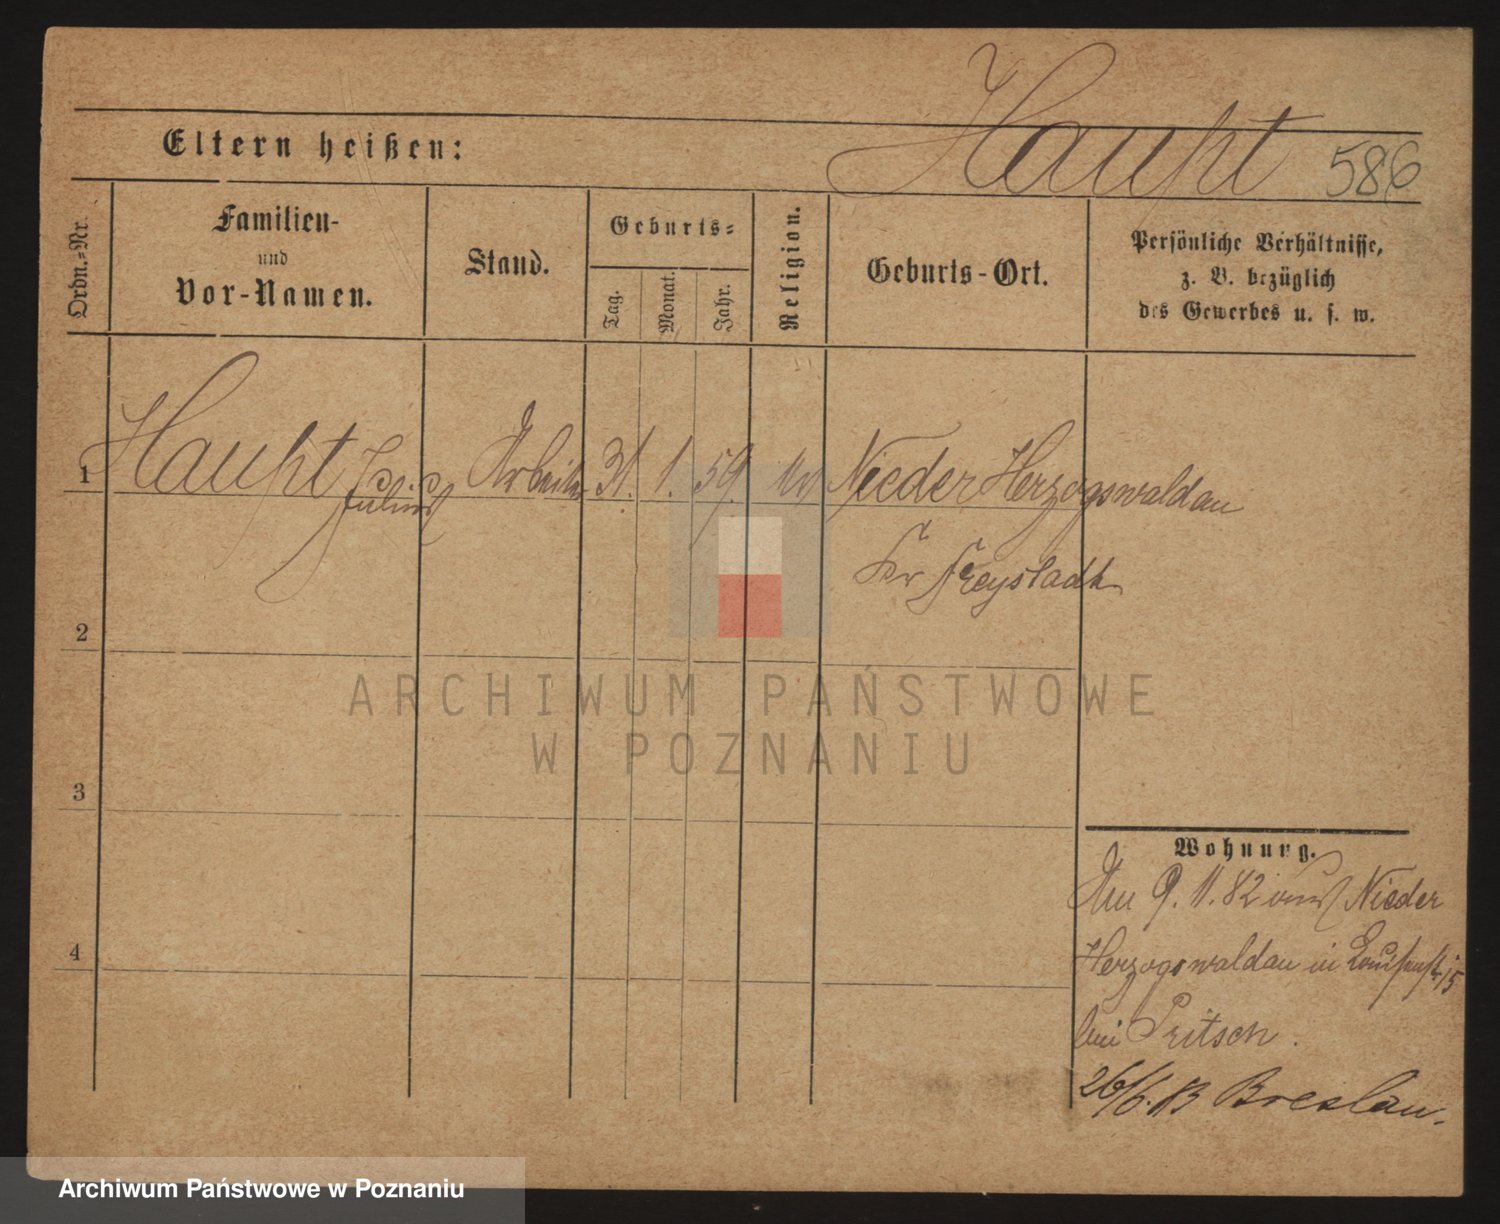 Eltern heißen:
Haupt 586
Ordn.-Nr.
Familien-
und
Vor-Namen.
Stand.
Geburts-
Tag.
Monat.
Jahr.
Religion.
Geburts-Ort.
Persönliche Verhältnisse,
z. B. bezüglich
des Gewerbes u. s. w.
1 Haupt Julius Arbeiter 31. 1. 59. Nieder Herzogswaldau
Kr Freystadt
2
ARCHIWUM PAŃSTWOWE
W POZNANIU
3
Wohnung.
Am 9. 11. 82 aus Nieder
4
Herzogswaldau in Louisenstr 15
bei Pritsch.
26/6. 83 Breslau.
Archiwum Państwowe w Poznaniu